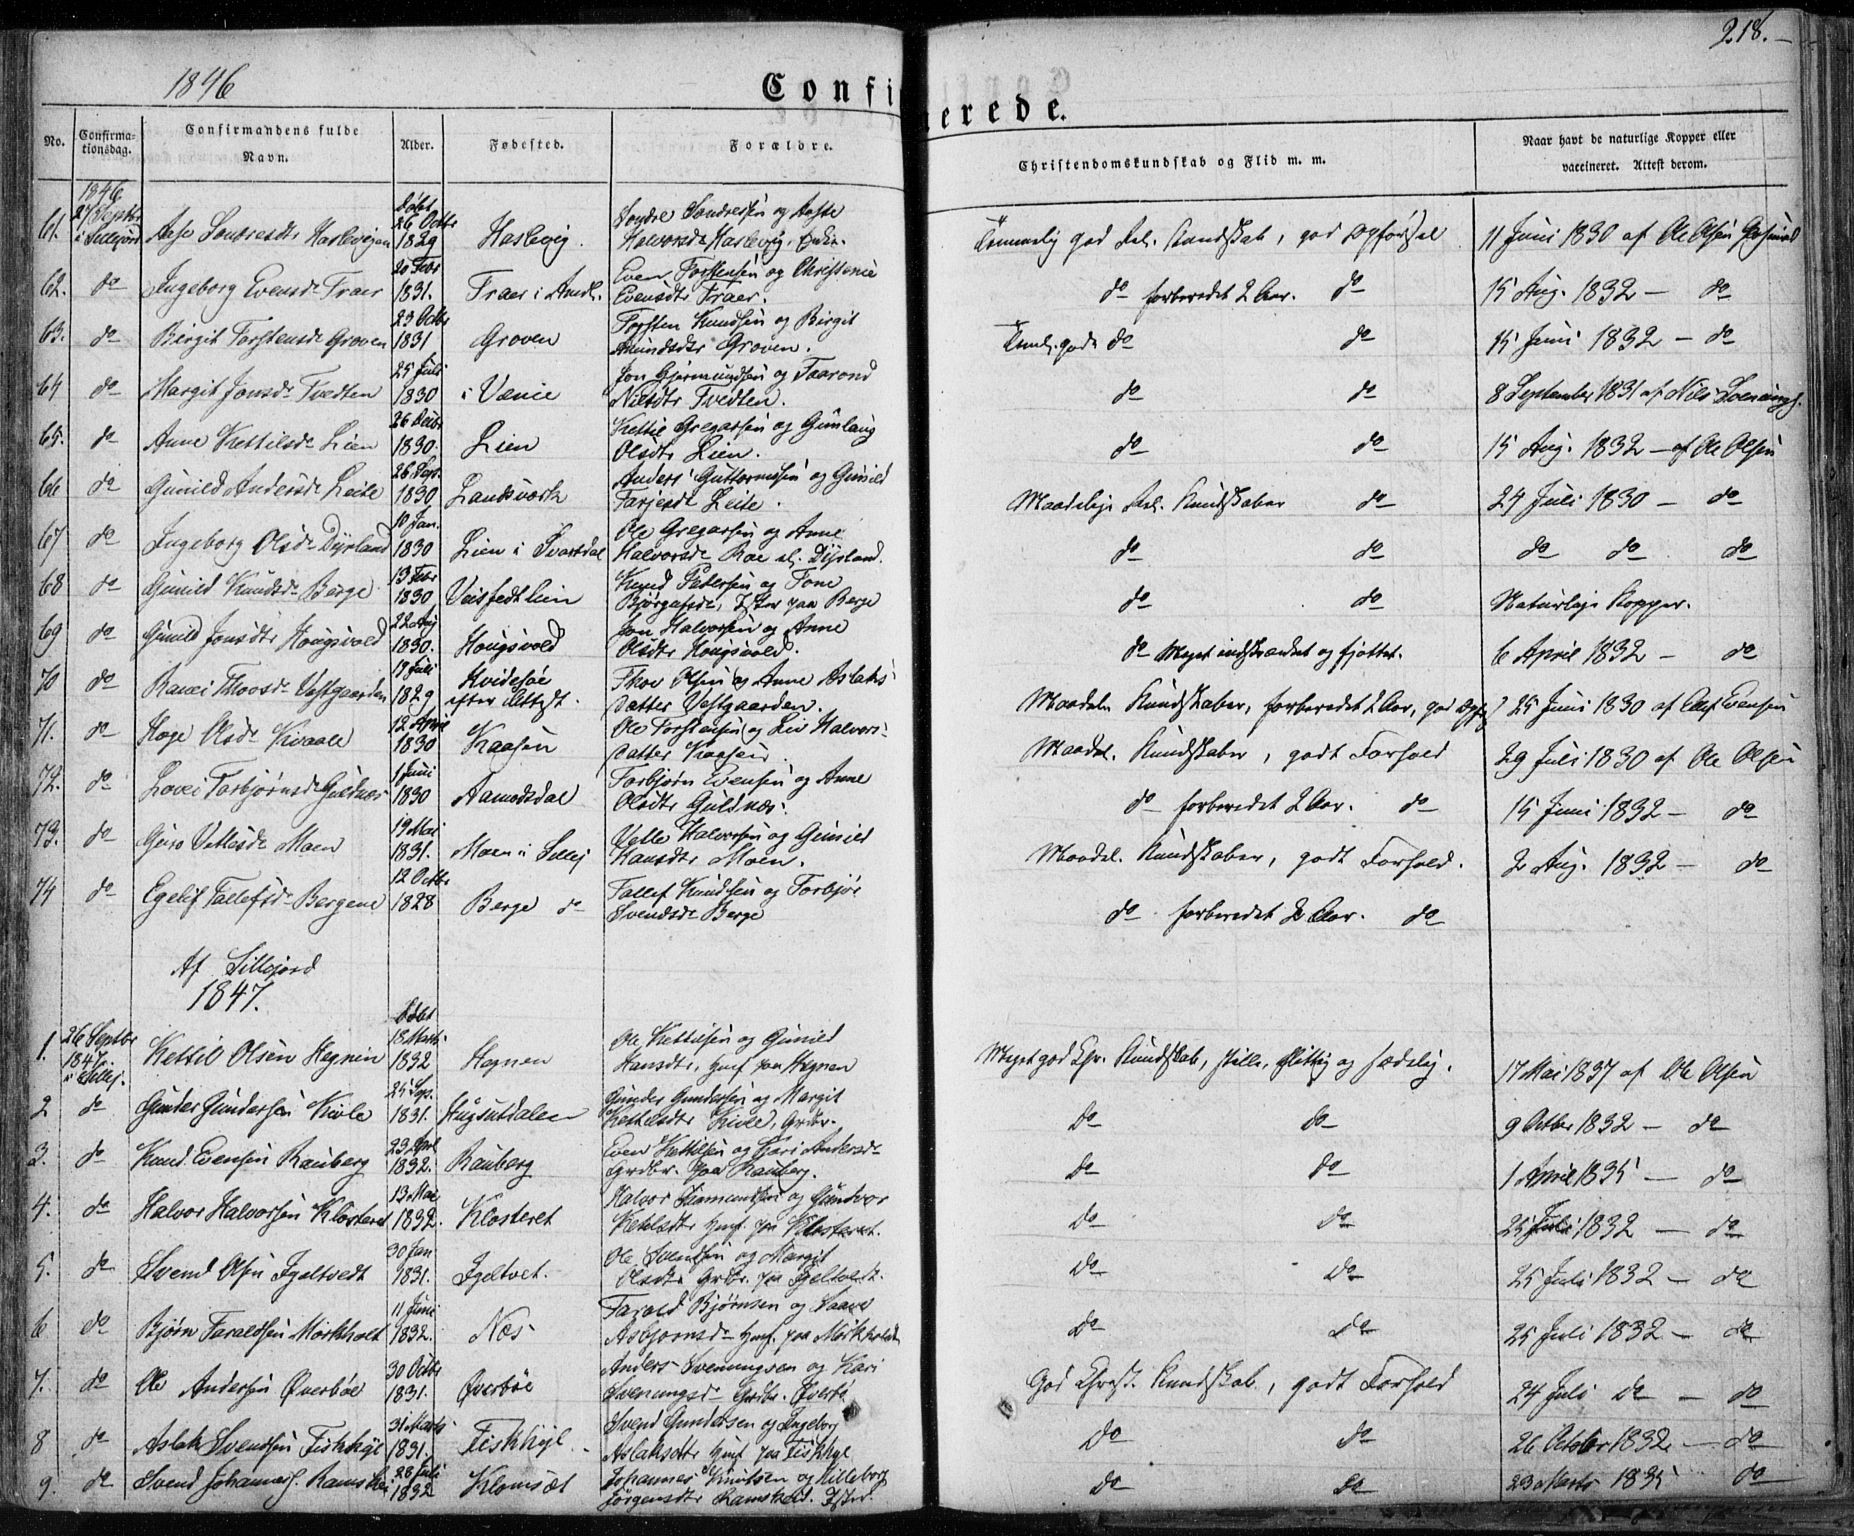 218.
1846
Confi erede.
No. Confirmationsdag. Confirmandens fulde Navn. Alder. Fødested. Forældre. Christendomskundskab og Flid m. m. Naar havt de naturlige Kopper eller vaccineret. Attest derom.
61. 1846 27 Septbr i Sillejord Aase Sondresdtr Haslevigen Døbt 26 Octbr 1829 Haslevig. Sondre Sondresen og Aaste Halvorsdr Haslevig, Kundskab, god Opførsel 11 Juni 1830 af Ole Olsen
62. do Ingeborg Evensdr Traer 20 Febr 1831. Traer i Even Torstensen og Christense Evensdtr Traer. do forberedet 2 Aar. do 15 Aug. 1832 — do
63. do Birgit Torstensdr Groven 23 Octbr 1831 Groven Torsten Knudsen og Birgit Amundsdtr Groven. gode do do 15 Juni 1832 — do
64 do Margit Jonsdr Tvedten 25 Juli 1830 i Vinie Jon Gjermundsen og Taarond Nilsdtr Tvedten. do do 8 September 1831 af Nils
65. do Anne Kettilsdr Lien 26 Decbr 1830. Lien Kettil Gregarsen og Gunlaug Olsdtr Lien. do do 15 Aug. 1832 — af Ole Olsen
66 do Gunild Andersdr Leite 26 Sept. 1830 Landsværk Anders Guttormsen og Gunild Tarjesdr Leite. Maadelige Rel. Kundskaber do 24 Juli 1830 — do
67 do Ingeborg Olsdr Dyrland 10 Jan. 1830 Lien i Svartdal Ole Gregarsen og Anne Halvorsdr Roe el. Dyrland. do do do do do
68 do Gunild Knudsdr Berge 13 Febr 1830 Veisfedtlien Knud Pedersen og Tone paa Berge do do Naturlige Kopper.
69 do Gunild Jonsdtr Hougsvold 22 Aug 1830. Hougsvold Jon Halvorsen og Anne Olsdtr Hougsvold. do Meget indskrænket og fjottet. 6 April 1832 — do
70 do Ranei Thoosdr Vestgaarden 19 Juli 1829 Hvidesøe efter Attest. Thov Olsen og Anne Aslaksdatter Vestgaarden. Maadel. Kundskaber, forberedet 2 Aar, god Opf. 25 Juni 1830 af Evensen
71. do Hæge Olsdr Kivaale 12 April 1830 Kaasen Ole Torstensen og Liv Halvorsdatter Kaasen. Maadel. Kundskaber, godt Forhold 29 Juli 1830 af Ole Olsen
72. do Lovei Torbjørnsdr Guldnæs 1 Juni 1830 Aamodsdal Torbjørn Evensen og Anne Olsdtr Guldnæs. do forberedet 2 Aar. do 15 Juni 1832 — do
73. do Guro Vetlesdr Moen 19 Mai 1831. Moen i Sillej Vetle Halvorsen og Gunild Hansdtr Moen. Maadel. Kundskaber, godt Forhold. 2 Aug. 1832 — do
74 do Egelif Tallefsdr Bergene 12 Octbr 1828 Berge do Tallef Knudsen og Torbjør Svendsdr Berge do forberedet 2 Aar. do
Af Sillejord
1847.
1. 26 Septbr 1847 i Sillej. Kettil Olsen Hegnin Døbt 18 Marts 1832 Hegnen Ole Kettilsen og Gunild Hansdtr, Hmf. paa Hegnen Meget god Chr. Kundskab, stille, flittig og sædelig. 17 Mai 1837 af Ole Olsen
2 do Gunder Gundersen Kivle 25 Sep. 1831. Gunder Gundersen og Margit Ketilsdtr Kivle, Grdbr. do do 9 Octbr 1832 — do
3. do Knud Evensen Rauberg 23 April 1832. Rauberg Even Kettilsen og Kari Andersdr Grdbr. paa Rauberg. do do 1 April 1835 — do
4. do Halvor Halvorsen Klosteret 13 Mai 1832. Klosteret Halvor og Gunvor Ketilsdtr Hmf. paa Klosteret. do do 25 Juli 1832 — do
5. do Svend Olsen Igeltvedt 30 Jan 1831. Igeltvet. Ole Svendsen og Margit Olsdtr Grdbr. paa Igeltvedt. do do 25 Juli 1832 — do
6 do Bjørn Taraldsen Mørkholt 11 Juni 1832. Næs Tarald Bjørnsen og Saave Asbjørnsdr Hmf. paa Mørkholdt do do 25 Juli 1832 — do
7. do Ole Andersen Øverbøe 30 Octbr 1831. Øverbøe Anders Svenungsen og Kari Svenungsdr Grdbr. Øverbø God Christ. Kundskab, godt Forhold 24 Juli do — do
8 do Aslak Svendsen Fiskkyl 31 Marts 1831. Fiskkyl Svend Gundersen og Ingeborg Aslaksdtr Hmf. paa Fiskkyl do do 26 October 1832. — do
9. do Svend Johannes. 28 Juli 1832 Klomsæt Johannes Knutsen og Killeborg Jørgensdtr do do 23 Marts 1835 do